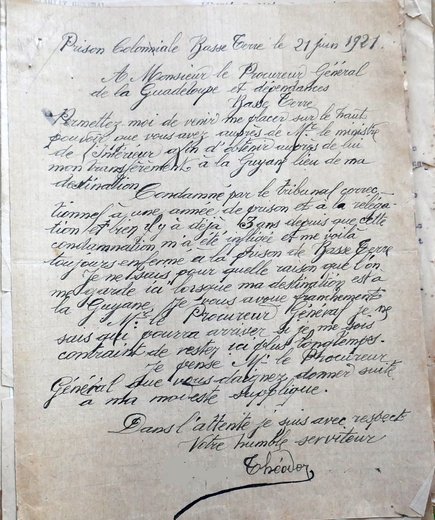 Prison Coloniale Basse Terre le 21 juin 1921.
A Monsieur le Procureur Général
de la Guadeloupe et dépendances
Basse Terre
Permettez moi de venir me placer sur le haut
pouvoir que vous avez auprès de Mr le ministre
de l'intérieur afin d'obtenir auprès de lui
mon transfèrement à la Guyane lieu de ma
destination
Condamné par le tribunal correc
tionnel à une année de prison et à la reléga
tion et bien il y a déjà 3 ans depuis que cette
condamnation m'a été infligée et me voilà
toujours enfermé a la prison de Basse Terre
Je ne sais pour quelle raison que l'on
me garde ici lorsque ma destination est à
la Guyane, Je vous avoue franchement
Mr le Procureur Général je ne
sais qui pourra arriver si je me sois
contraint de rester ici plus longtemps.
Je pense Mr le Procureur
Général que vous daignez donner suite
à ma modeste supplique.
Dans l'attente je suis avec respect
Votre humble serviteur
Théodor